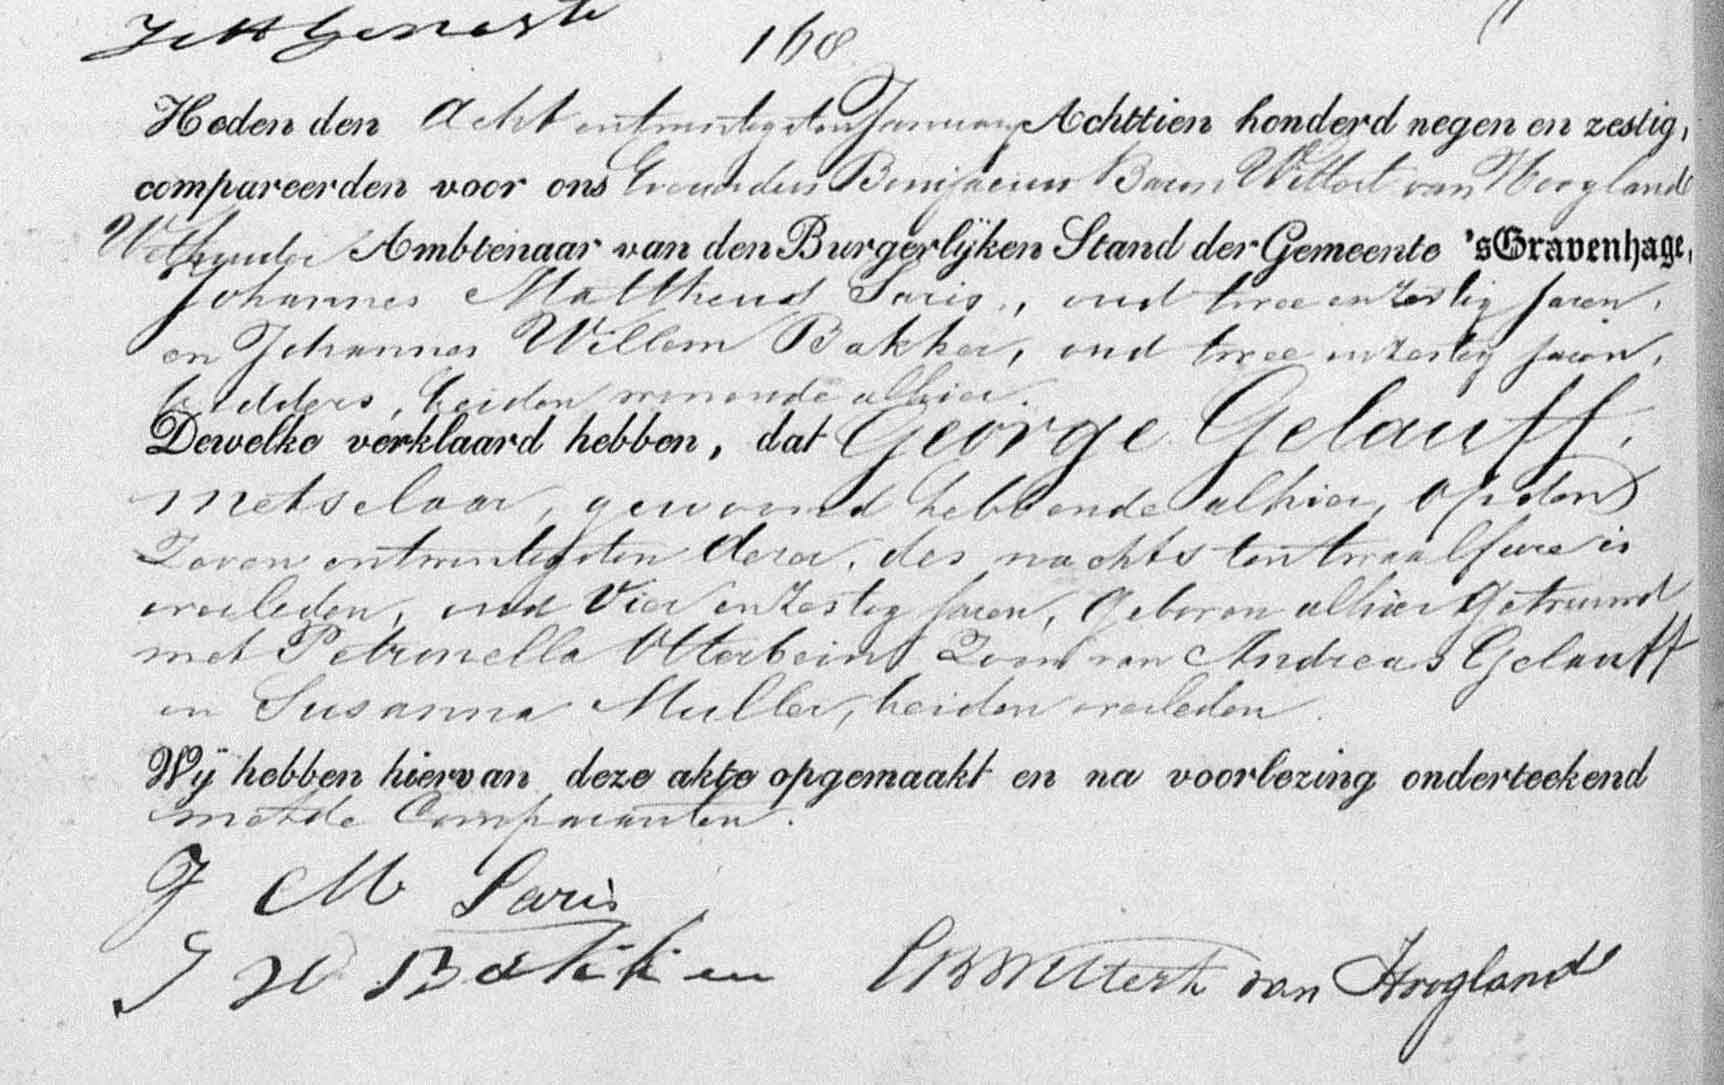 168
Heden den Acht en twintigsten Januarij Achttien honderd negen en zestig,
compareerden voor ons Everardus Bonifacius Baron Wittert van Hoogland
Wethouder Ambtenaar van den Burgerlijken Stand der Gemeente 's Gravenhage,
Johannes Mattheus Saris, oud twee en zestig jaren,
en Johannes Willem Bakker, oud twee en zestig jaren,
bidders, beiden wonende alhier.
Dewelke verklaard hebben, dat George Gelauff,
metselaar, gewoond hebbende alhier, op den
Zeven en twintigsten dezer, des nachts ten twaalf ure is
overleden, oud Vier en Zestig jaren, geboren alhier Getrouwd
met Petronella Otterbein, Zoon van Andreas Gelauff
en Susanna Muller, beiden overleden.
Wij hebben hiervan deze akte opgemaakt en na voorlezing onderteekend
met de Comparanten.
J M Saris
J W Bakker
EBWittert van Hoogland